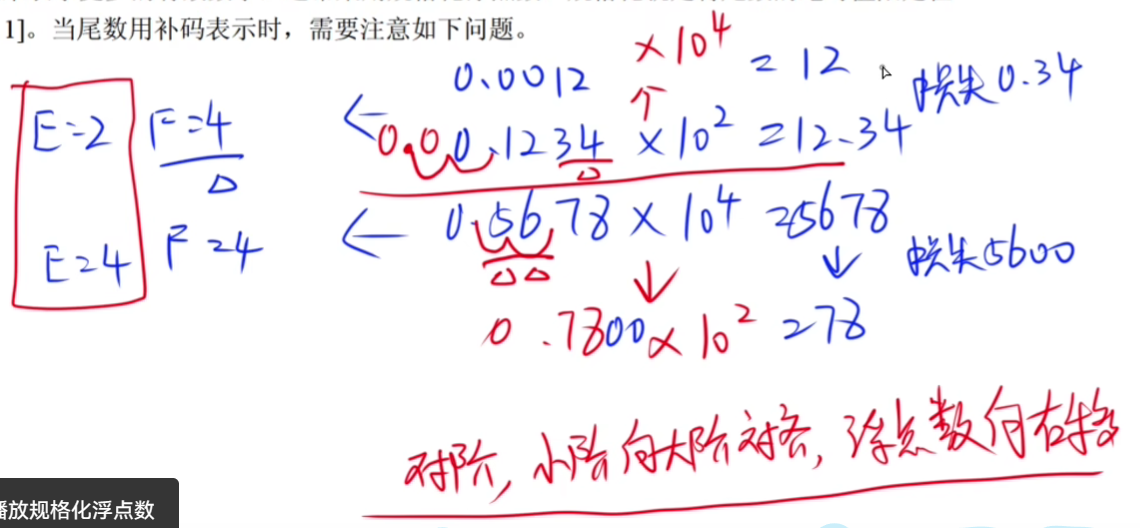 1]。当尾数用补码表示时，需要注意如下问题。
×10⁴
0.0012 = 12
损失0.34
E=2 F=4
0.00.1234 × 10² = 12.34
0.5678 × 10⁴ = 5678
E=4 F=4
损失5600
0.7800 × 10² = 78
对阶，小阶向大阶对齐，浮点数向右移
播放规格化浮点数